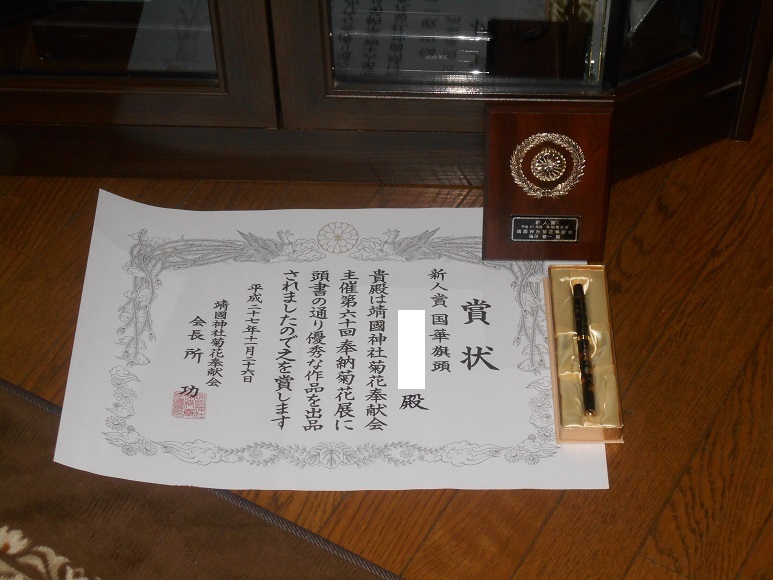 賞状
新人賞 国華旗頭
殿
貴殿は靖國神社菊花奉献会
主催第六十回奉納菊花展に
頭書の通り優秀な作品を出品
されましたので之を賞します
平成二十七年十一月二十六日
靖國神社菊花奉献会
会長 所 功
新人賞
靖國神社菊花奉献会